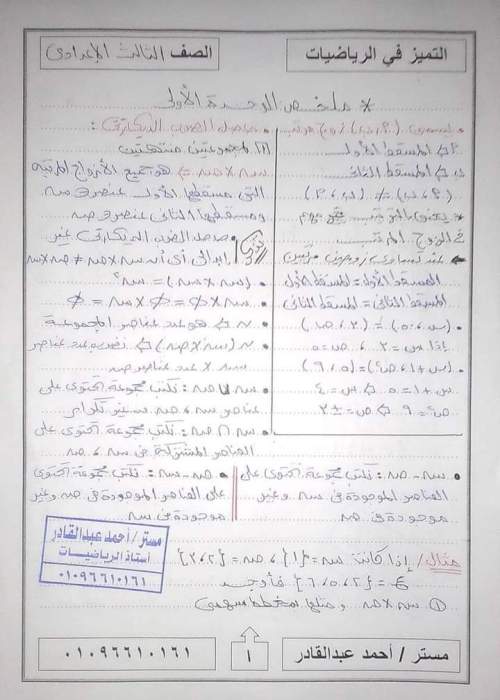 التميز في الرياضيات
الصف الثالث الإعدادى
* ملخص الوحدة الأولى
• يسمى (م، ب) زوج مرتب
م ← المسقط الأول
ب ← المسقط الثانى
(م، ب) ≠ (ب، م)
فى الزوج المرتب
← عند تساوى زوجين مرتبين
المسقط الأول = المسقط الأول
المسقط الثانى = المسقط الثانى
• (س، ٥) = (٢، ص)
إذا س = ٢، ص = ٥
• (س + ١، ص²) = (٥، ٩)
س + ١ = ٥ ⇐ س = ٤
ص² = ٩ ⇐ ص = ± ٣
• حاصل الضرب الديكارتى:
لمجموعتين منتهيتين
سـ × صـ ← هو جميع الأزواج المرتبة
التى مسقطها الأول عنصر فى سـ
ومسقطها الثانى عنصر فى صـ
• حاصل الضرب الديكارتى غير
إبدالى أى أن سـ × صـ ≠ صـ × سـ
• (سـ × سـ) = سـ²
• سـ × ∅ = ∅ × سـ = ∅
• ن ← هو عدد عناصر المجموعة
• ن (سـ × صـ) ← نضرب عدد عناصر
سـ × عدد عناصر صـ
• سـ ∪ صـ: نكتب مجموعة تحتوى على
عناصر سـ، صـ بدون تكرار
• سـ ∩ صـ: نكتب مجموعة تحتوى على
العناصر المشتركة فى سـ، صـ
• سـ - صـ: نكتب مجموعة تحتوى على
العناصر الموجودة فى سـ وغير
موجودة فى صـ
• صـ - سـ: نكتب مجموعة تحتوى
على العناصر الموجودة فى صـ وغير
موجودة فى سـ
مثال/ إذا كانت سـ = {١}، صـ = {٢، ٣}
ع = {٢، ٥، ٦} فأوجد
① سـ × صـ ومثلها بمخطط سهمى
مستر / أحمد عبدالقادر
أستاذ الرياضيات
٠١٠٩٦٦١٠١٦١
مستر / أحمد عبدالقادر
١
٠١٠٩٦٦١٠١٦١